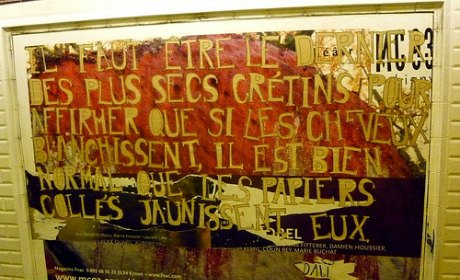 IL FAUT ÊTRE LE DERNIER
DES PLUS SECS CRÉTINS POUR
AFFIRMER QUE SI LES CHEVEUX
BLANCHISSENT, IL EST BIEN
NORMAL QUE DES PAPIERS
COLLÉS JAUNISSENT EUX.
DALI
MC 93
FITTERER, DAMIEN HOUSSIER,
COLIN REY, MARIE RUCHAT
Magasins Fnac
www.fnac.com
www.mc